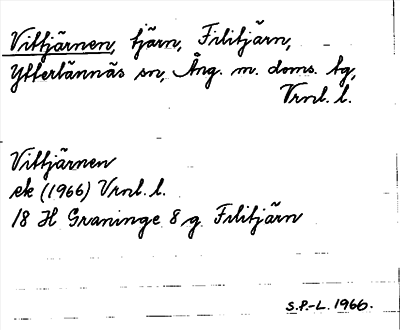 Vittjärnen, tjärn, Filitjärn,
Ytterlännäs sn, Ång. m. doms. tg,
Vrnl. l.
Vittjärnen
ek (1966) Vrnl. l.
18 H Graninge 8 g Filitjärn
S.P.-L. 1966.